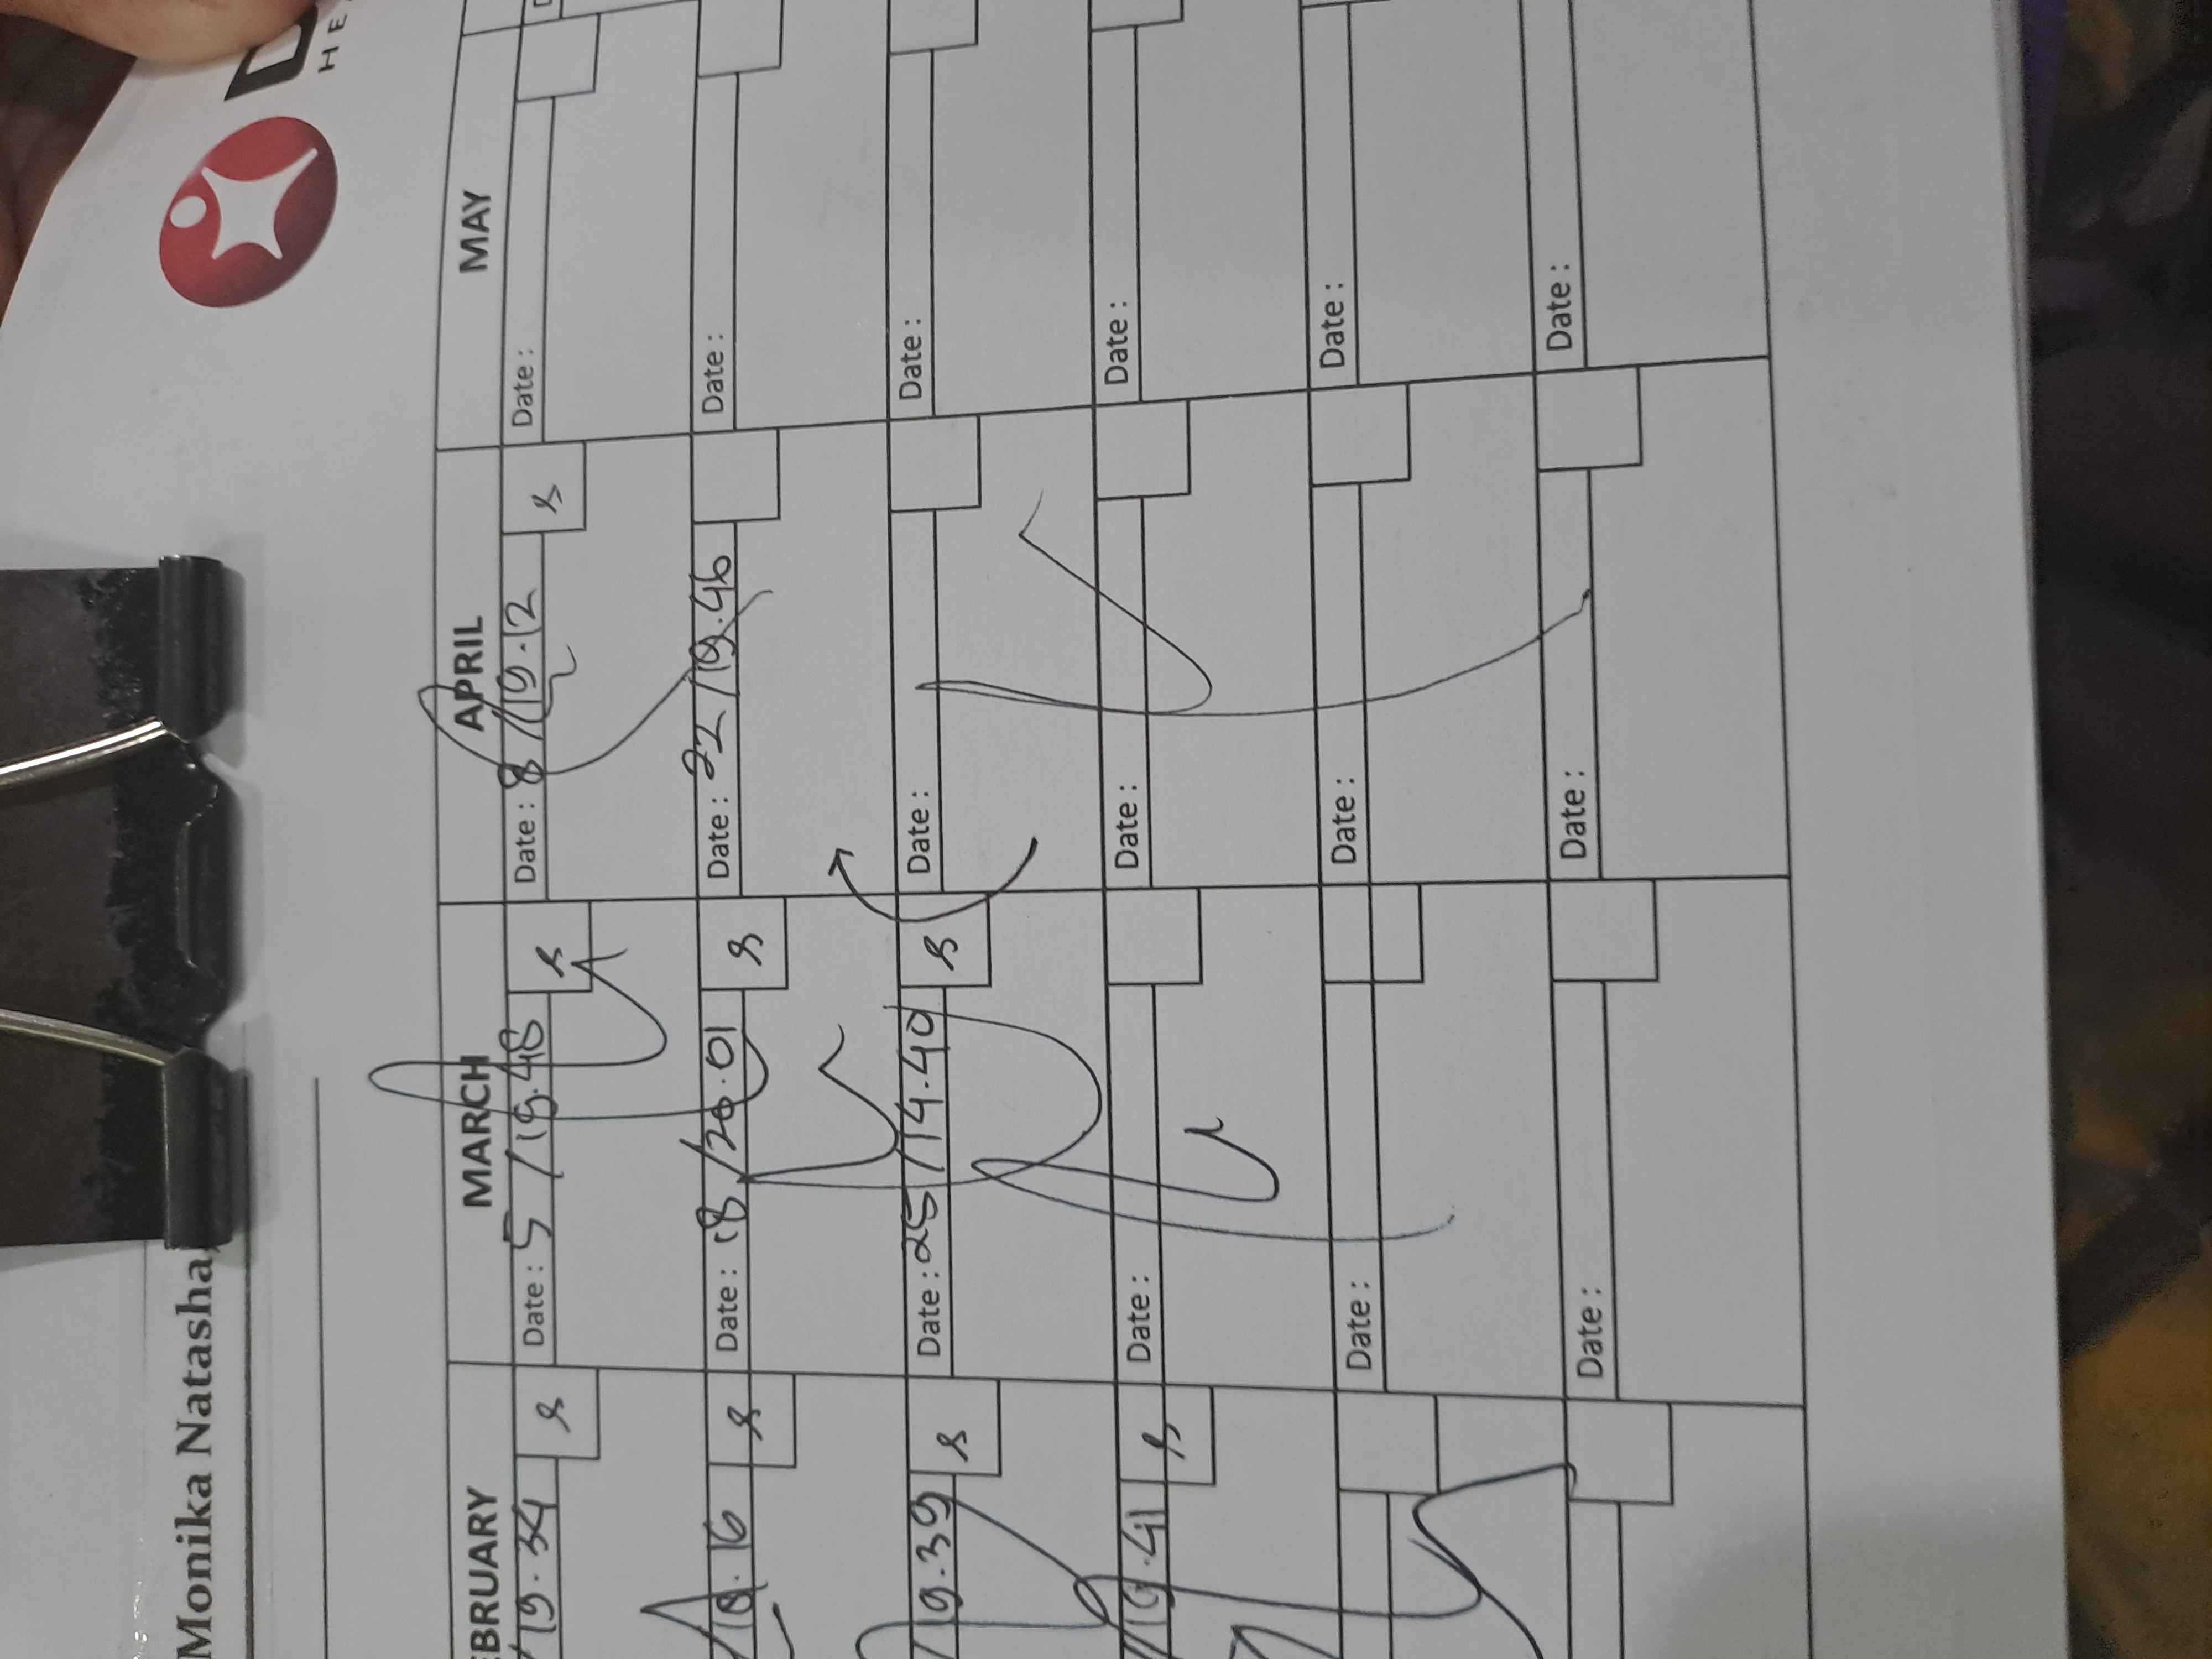 Monika Natasha
HE
EBRUARY MARCH APRIL MAY
19.34 Date : 5 / 19.48 Date : 8 / 19.12 Date :
.16 Date : 18 / 20.01 Date : 22 / 19.46 Date :
19.39 Date : 25 / 14.40 Date : Date :
19.41 Date : Date : Date :
Date : Date : Date :
Date : Date : Date :